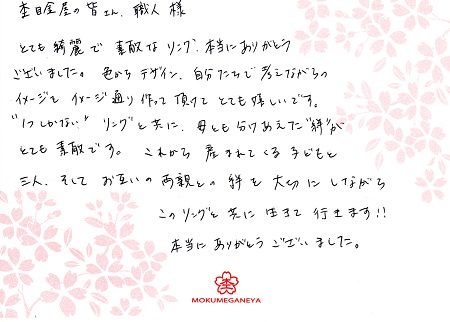 杢目金屋の皆さん、職人様
とても綺麗で素敵なリング、本当にありがとう
ございました。色からデザイン、自分たちで考えながらの
イメージをイメージ通り作って頂けてとても嬉しいです。
"1つしかない"リングと共に、母とも分けあえた"絆"が
とても素敵です。これから産まれてくる子どもと
三人、そしてお互いの両親との絆を大切にしながら
このリングと共に生きて行きます!!
本当にありがとうございました。
MOKUMEGANEYA